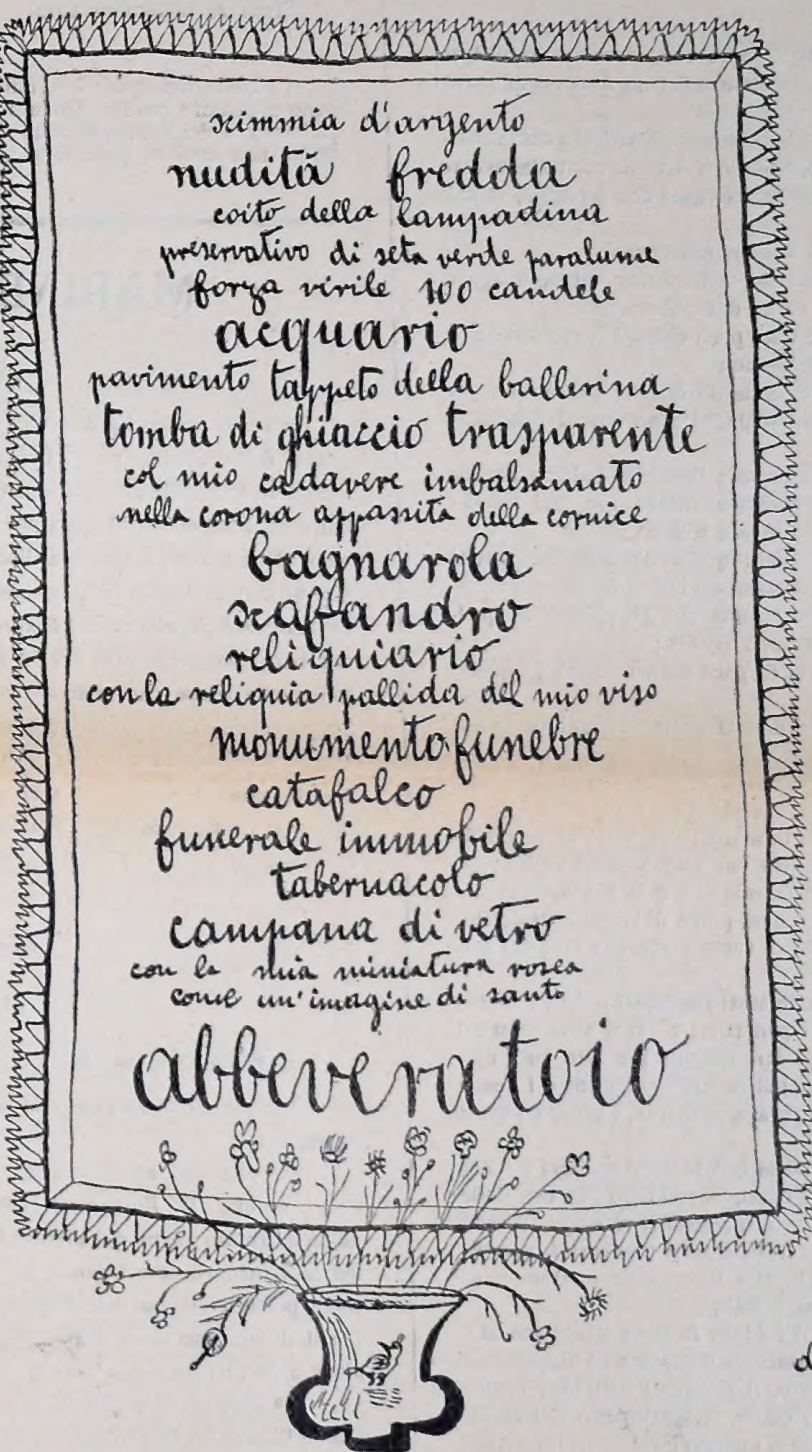 scimmia d'argento
nudità fredda
coito della lampadina
preservativo di seta verde paralume
forza virile 100 candele
acquario
pavimento tappeto della ballerina
tomba di ghiaccio trasparente
col mio cadavere imbalsamato
nella corona appassita della cornice
bagnarola
scafandro
reliquiario
con la reliquia pallida del mio viso
monumento funebre
catafalco
funerale immobile
tabernacolo
campana di vetro
con la mia miniatura rosea
come un'imagine di santo
abbeveratoio